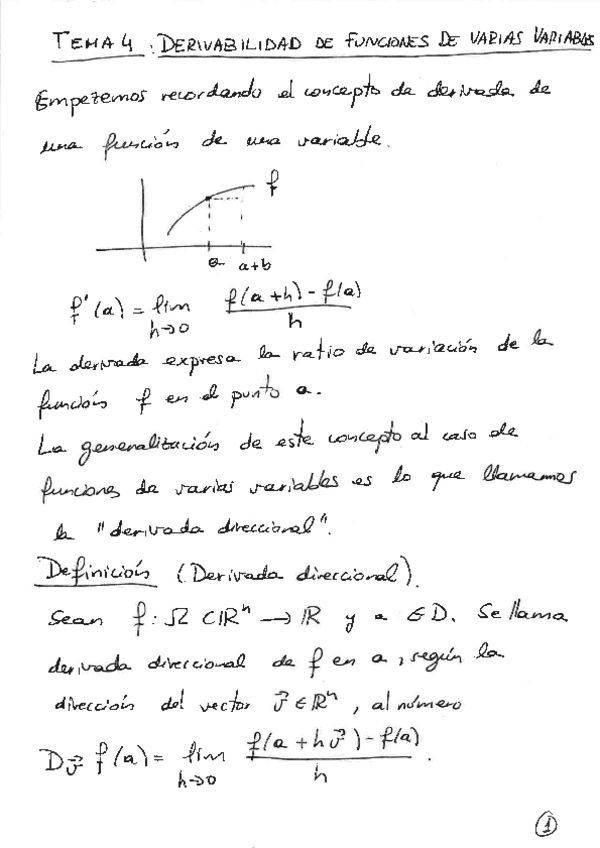 TEMA 4: DERIVABILIDAD DE FUNCIONES DE VARIAS VARIABLES
Empezemos recordando el concepto de derivada de
una función de una variable.
f
a a+h
f'(a) = lim h→0 f(a+h)-f(a) / h
La derivada expresa la ratio de variación de la
función f en el punto a.
La generalización de este concepto al caso de
funciones de varias variables es lo que llamamos
la "derivada direccional".
Definición (Derivada direccional).
Sean f: Ω ⊂ ℝⁿ → ℝ y a ∈ D. Se llama
derivada direccional de f en a, según la
dirección del vector v⃗ ∈ ℝⁿ, al número
D_v⃗ f(a) = lim h→0 f(a+h v⃗)-f(a) / h .
1